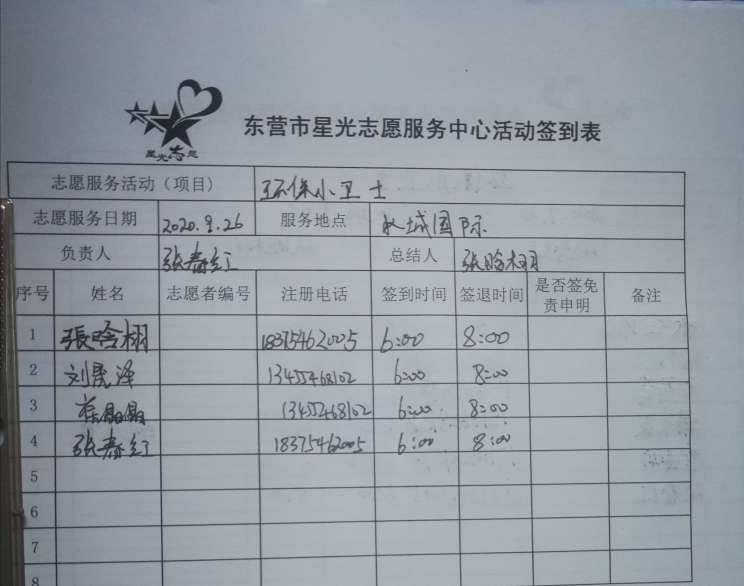 星光志愿
东营市星光志愿服务中心活动签到表
志愿服务活动（项目） 环保小卫士
志愿服务日期 2020.9.26 服务地点 水城国际
负责人 张春红 总结人 张晗栩
序号 姓名 志愿者编号 注册电话 签到时间 签退时间 是否签免责申明 备注
1 張晗栩 18375462005 6:00 8:00
2 刘晟泽 13455468102 6:00 8:00
3 晶晶 13455468102 6:00 8:00
4 张春红 18375462005 6:00 8:00
5
6
7
8